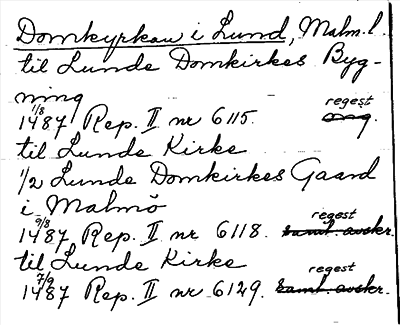 Domkyrkan i Lund, Malm. l.
til Lunde Domkirkes Byg-
ning
1/8 regest
1487 Rep. II nr 6115. orig.
til Lunde Kirke
1/2 Lunde Domkirkes Gaard
i Malmö
9/8 regest
1487 Rep. II nr 6118. samt. avskr.
til Lunde Kirke
7/9 regest
1487 Rep. II nr 6129. samt. avskr.